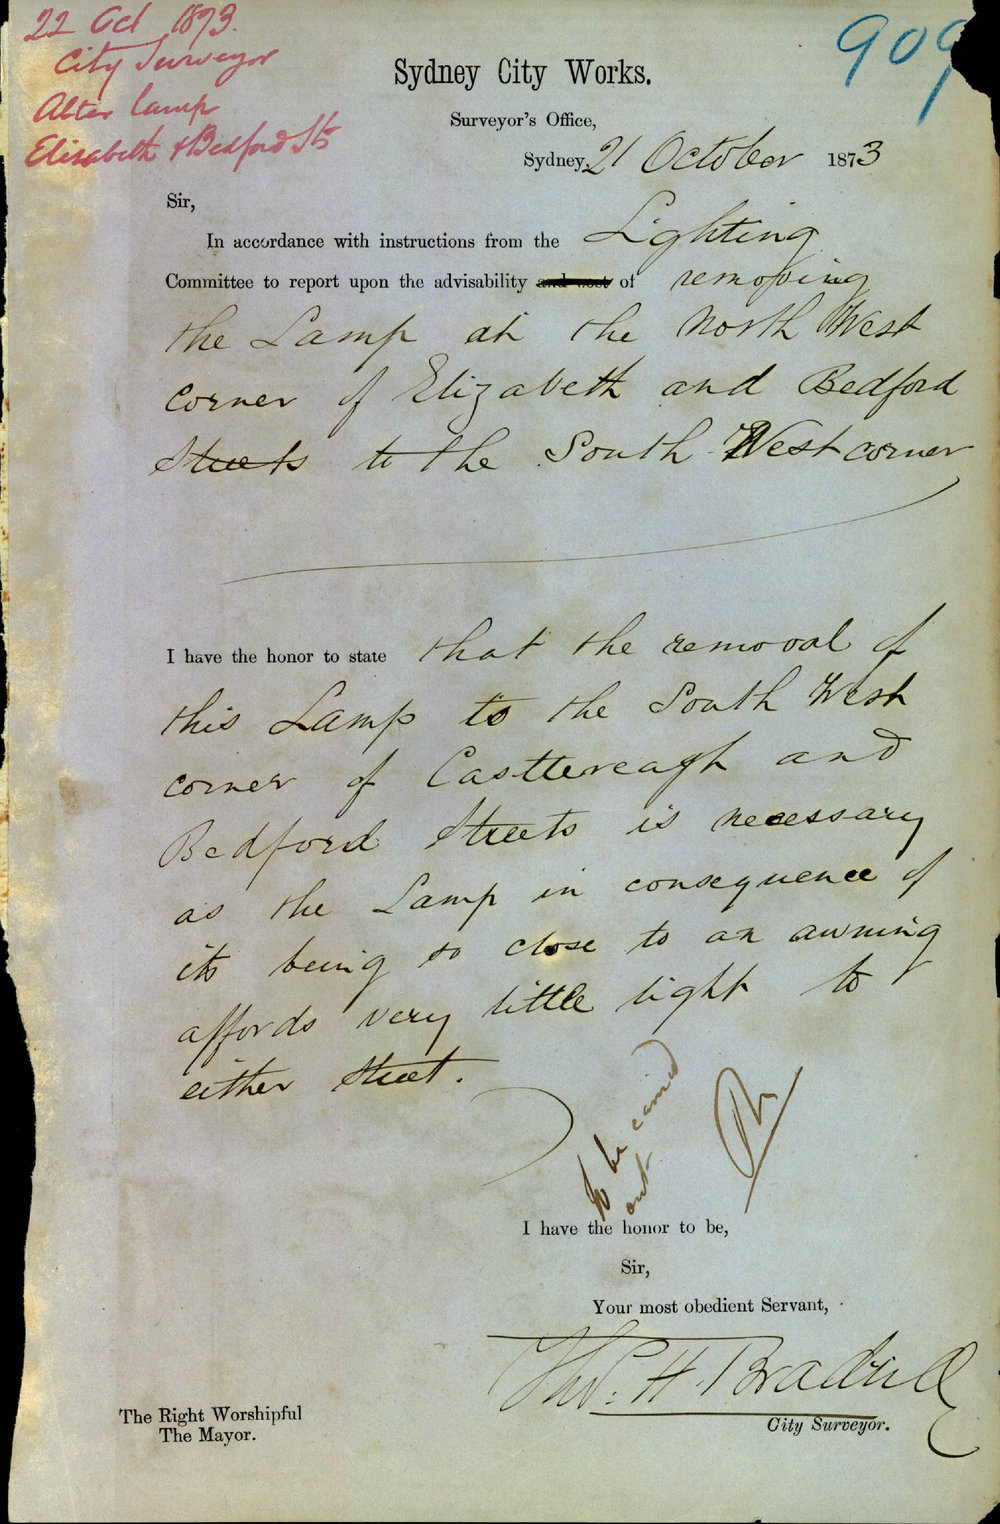 22 Oct 1873.
City Surveyor
Alter lamp
Elizabeth & Bedford Sts
909
Sydney City Works.
Surveyor's Office,
Sydney, 21 October 1873
Sir,
In accordance with instructions from the Lighting
Committee to report upon the advisability and cost of removing
the Lamp at the North West
corner of Elizabeth and Bedford
Streets to the South West corner
I have the honor to state that the removal of
this Lamp to the South West
corner of Castlereagh and
Bedford Streets is necessary
as the Lamp in consequence of
its being so close to an awning
affords very little light to
either Street.
To be carried
out
I have the honor to be,
Sir,
Your most obedient Servant,
Thos. H. Bradridge
City Surveyor.
The Right Worshipful
The Mayor.